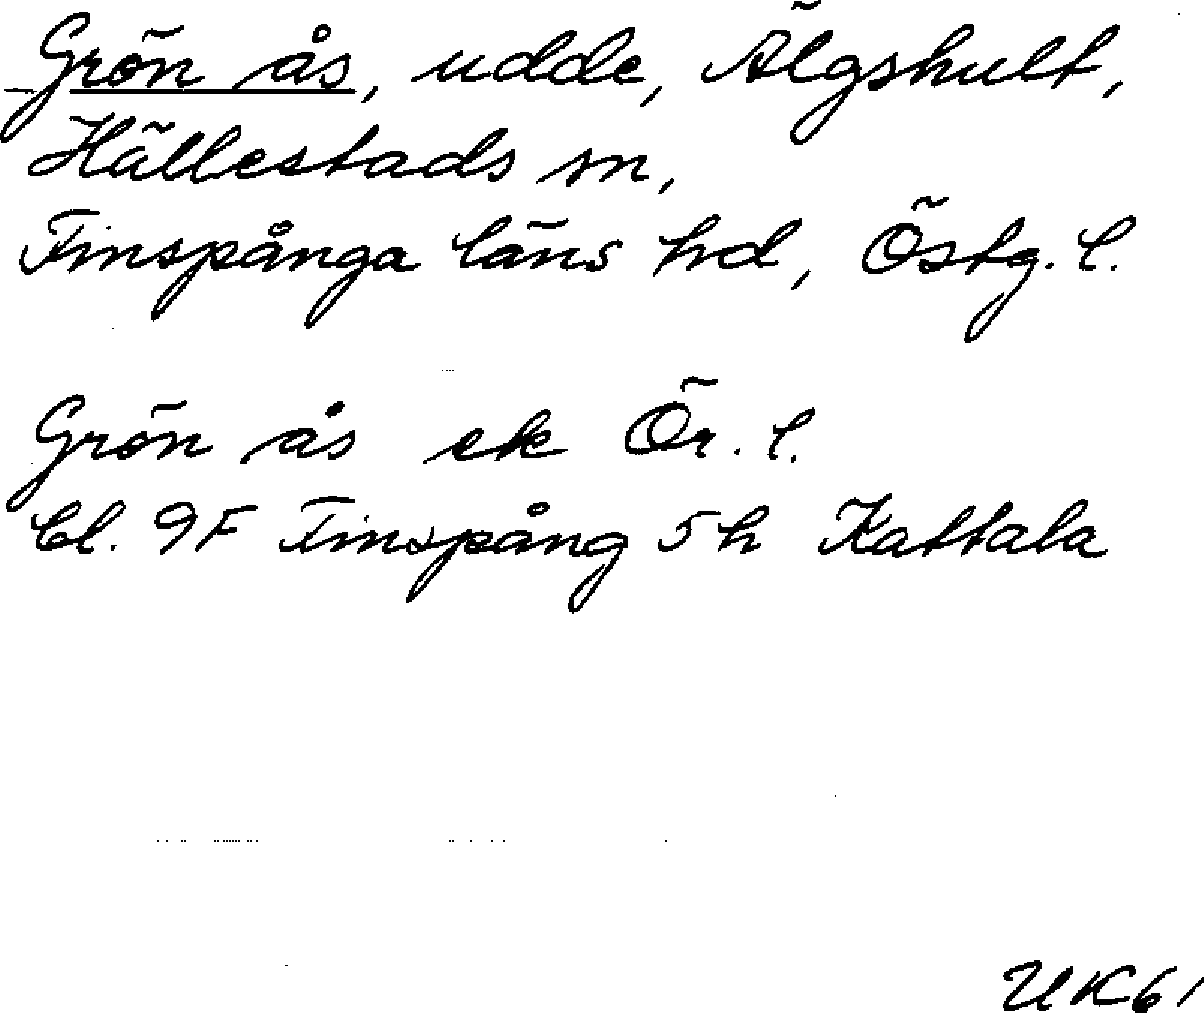 Grön ås, udde, Älgshult,
Hällestads sn,
Finspånga läns hd, Östg. l.
Grön ås ek Ör. l.
bl. 9F Finspång 5h Kattala
UK61